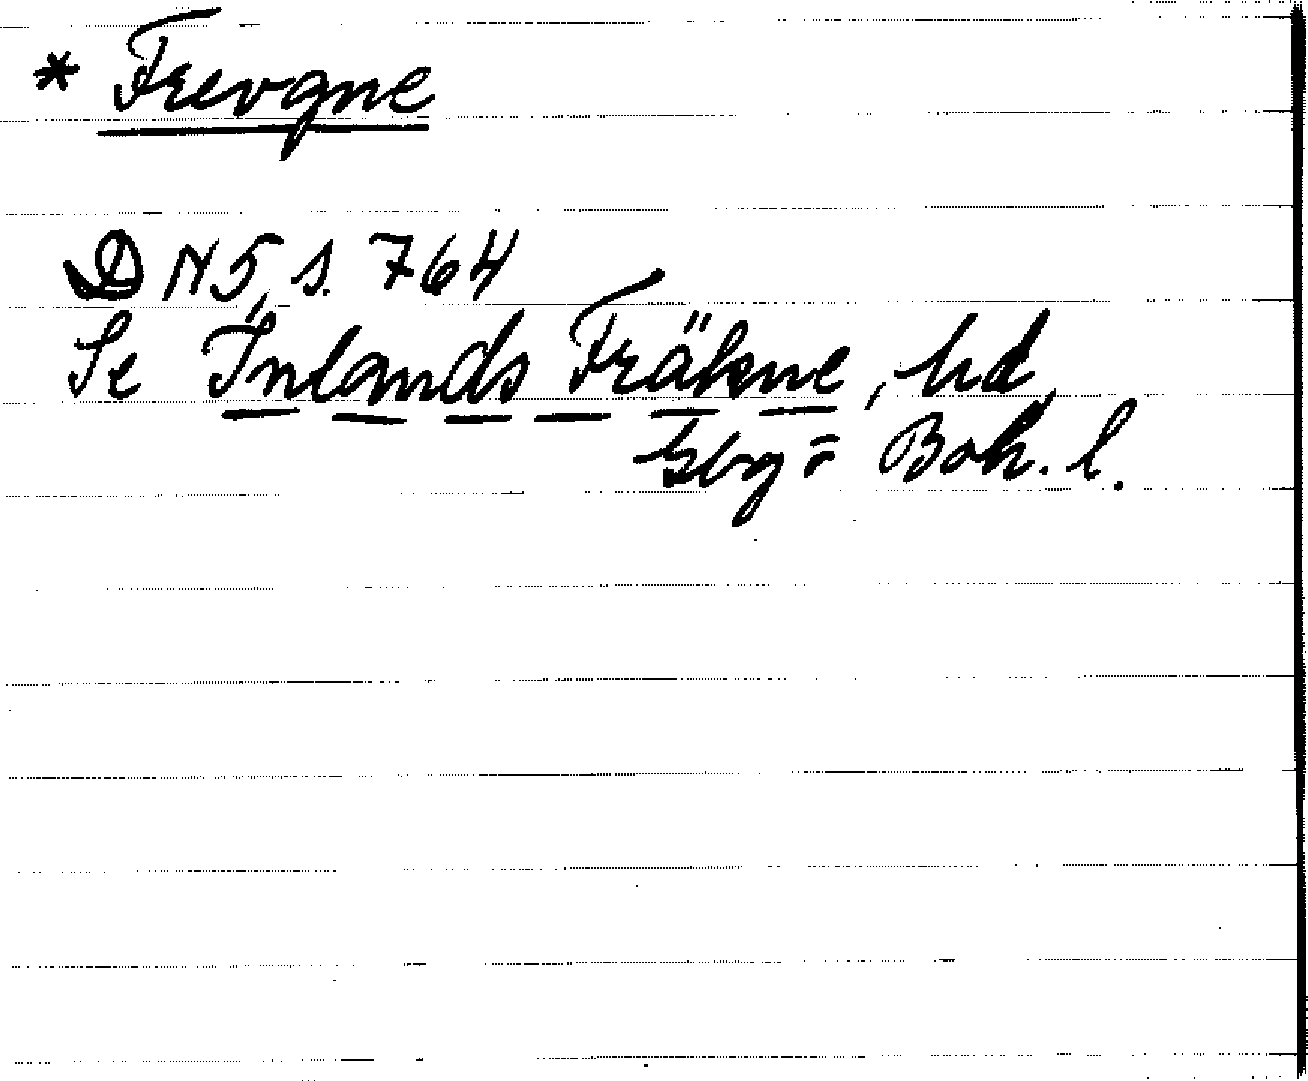 * Frevgne
DN5, s. 764
Se Inlands Fräkne, hd,
Gbg= Boh. l.